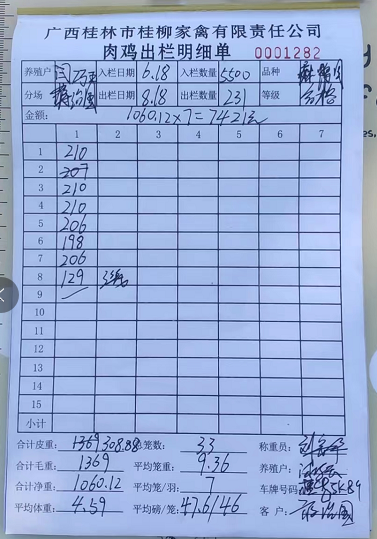 广西桂林市桂柳家禽有限责任公司
肉鸡出栏明细单 0001282
养殖户 入栏日期 6.18 入栏数量 5500 品种
分场 出栏日期 8.18 出栏数量 231 等级 合格
金额： 1060.12×7=7421元
1 2 3 4 5 6 7
1 210
2 207
3 210
4 210
5 206
6 198
7 206
8 129
9
10
11
12
13
14
15
小计
合计皮重： 308.88 总笼数： 33 称重员：
合计毛重： 1369 平均笼重： 9.36 养殖户：
合计净重： 1060.12 平均笼/羽： 7 车牌号码
平均体重： 4.59 平均磅/笼： 47.6/46 客户：